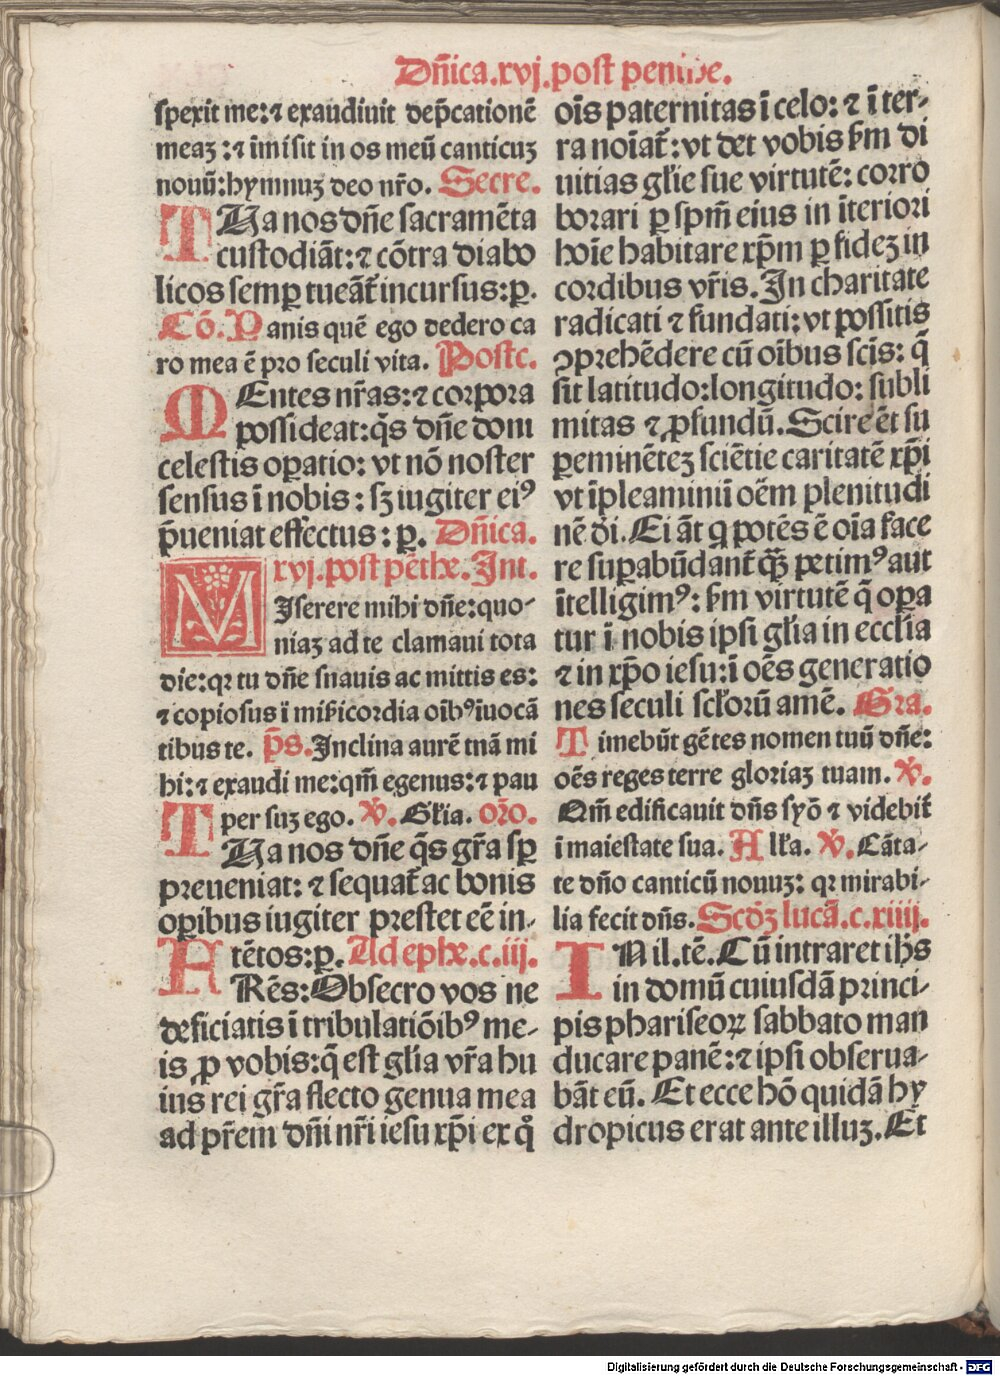 Dñica.xvj.post penthe.
spexit me:⁊ exaudiuit dep̄cationē
meaꝫ :⁊ īmisit in os meū canticuꝫ
nouū:hymnuꝫ deo nr̄o. Secre.
THa nos dñe sacramēta
custodiāt:⁊ cōtra diabo
licos semꝑ tueāt᷑ incursus:ꝑ.
Cō. Panis quē ego dedero ca
ro mea ē pro seculi vita. Postc.
MEntes nr̄as:⁊ corpora
possideat:q̄s dñe doni
celestis oꝑatio: vt nō noster
sensus ī nobis : sꝫ iugiter eiꝰ
p̄ueniat effectus : ꝑ. Dñica.
xvj.post pēthe. Int.
MIserere mihi dñe:quo-
niaꝫ ad te clamaui tota
die:qꝛ tu dñe snauis ac mittis es:
⁊ copiosus ī mīcordia oībꝰ īuocā
tibus te. p̄s. Inclina aurē tuā mi
hi:⁊ exaudi me:qm̄ egenus:⁊ pau
per suꝫ ego. ℣. Gl̄ia. oro̅.
THa nos dñe q̄s gr̄a sꝑ
preueniat: ⁊ sequat᷑ ac bonis
oꝑibus iugiter prestet eē in-
tētos:ꝑ. Ad ephe.c.iij.
FRēs:Obsecro vos ne
deficiatis ī tribulatiōibꝰ me-
is ꝓ vobis:q̄ est gl̄ia vr̄a hu
ius rei gr̄a flecto genua mea
ad pr̄em dñi nr̄i iesu xp̄i ex qͦ
oīs paternitas ī celo: ⁊ ī ter-
ra noīat᷑:vt det vobis ẜm di
uitias gl̄ie sue virtutē: corro
borari ꝑ spm̄ eius in īteriori
hoīe habitare xp̄m ꝑ fideꝫ in
cordibus vr̄is. In charitate
radicati ⁊ fundati:vt possitis
ꝯprehēdere cū oībus scīs: q̄
sit latitudo:longitudo: subli
mitas ⁊ ꝓfundū. Scire ēt su
ꝑeminēteꝫ sciētie caritatē xp̄i
vt īpleaminiī oēm plenitudi
nē di̅. Ei āt q potēs ē oīa face
re suꝑabūdant᷑ qꝫ̄ petimꝰ aut
ītelligimꝰ: ẜm virtutē q̄ oꝑa
tur ī nobis ipsi gl̄ia in eccl̄ia
⁊ in xp̄o iesu:ī oēs generatio
nes seculi scl̄orū amē. Gra.
Timebūt gētes nomen tuū dñe:
oēs reges terre gloriaꝫ tuam. ℣.
Qm̄ edificauit dñs syō ⁊ videbit᷑
ī maiestate sua. All̄a. ℣. Cāta-
te dño canticū nouuꝫ: qꝛ mirabi-
lia fecit dñs. Scd̄ꝫ lucā.c.xiiij.
IN il.tē. Cū intraret ih̄s
in domū cuiusdā princi-
pis phariseoꝝ sabbato man
ducare panē:⁊ ipsi obserua-
bāt eū. Et ecce hō quidā hy
dropicus erat ante illuꝫ. Et
Digitalisierung gefördert durch die Deutsche Forschungsgemeinschaft - DFG